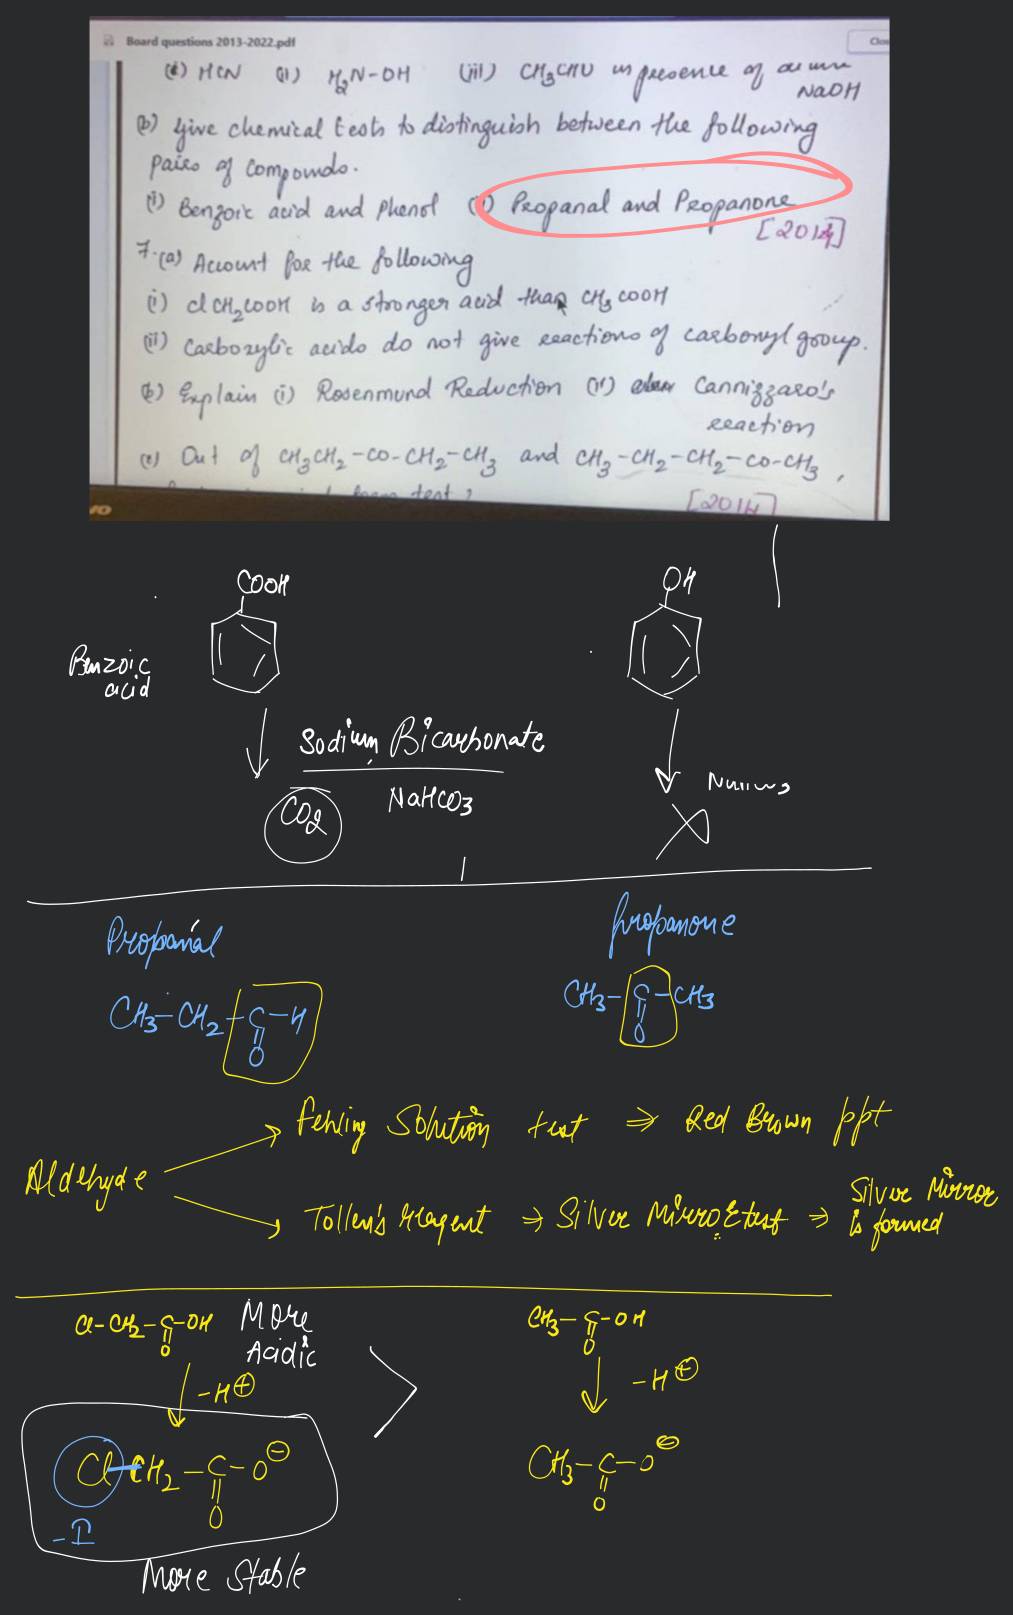 Board questions 2013-2022.pdf
Clo
(i) HCN (ii) H₂N-OH (iii) CH₃CHO in presence of
NaOH
(b) Give chemical tests to distinguish between the following
pairs of compounds.
(i) Benzoic acid and Phenol (ii) Propanal and Propanone
[2014]
7. (a) Account for the following
(i) ClCH₂COOH is a stronger acid than CH₃COOH
(ii) Carboxylic acids do not give reactions of carbonyl group.
(b) Explain (i) Rosenmund Reduction (ii) Cannizzaro's
reaction
(c) Out of CH₃CH₂-CO-CH₂-CH₃ and CH₃-CH₂-CH₂-CO-CH₃,
test?
[2014]
COOH
OH
Benzoic
acid
Sodium Bicarbonate
NaHCO3
CO2
Propanal
Propanone
CH3-CH2-C-H
O
CH3-C-CH3
O
Aldehyde
Fehling Solution test ⇒ Red Brown ppt
Tollen's reagent ⇒ Silver Mirror test ⇒ Silver Mirror
is formed
Cl-CH2-C-OH
O
More
Acidic
CH3-C-OH
O
-H⊕
-H⊕
>
Cl-CH2-C-O⊖
O
-I
CH3-C-O⊖
O
More Stable